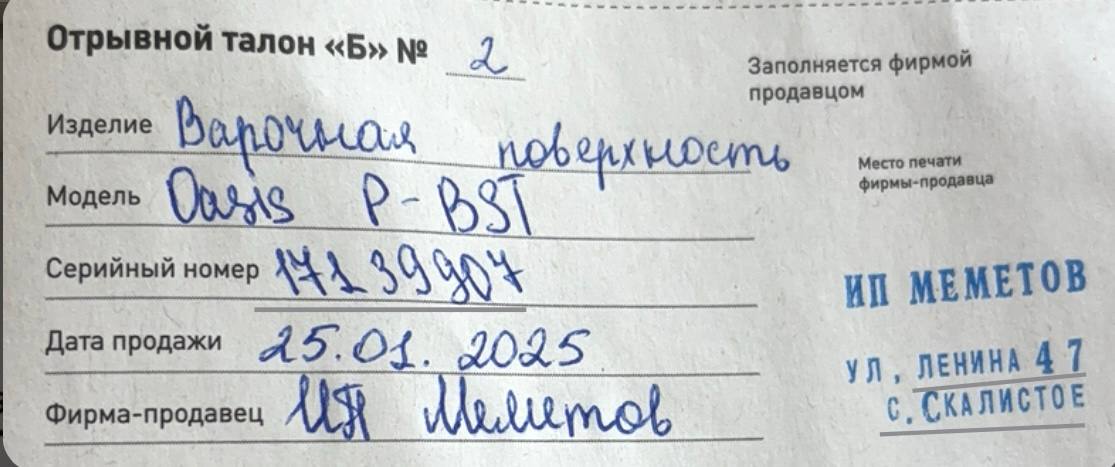 Отрывной талон «Б» № 2
Заполняется фирмой
продавцом
Изделие Варочная поверхность
Место печати
фирмы-продавца
Модель Oasis P-BST
Серийный номер 17139907
Дата продажи 25.01.2025
Фирма-продавец ИП Меметов
ИП МЕМЕТОВ
УЛ, ЛЕНИНА 47
С. СКАЛИСТОЕ